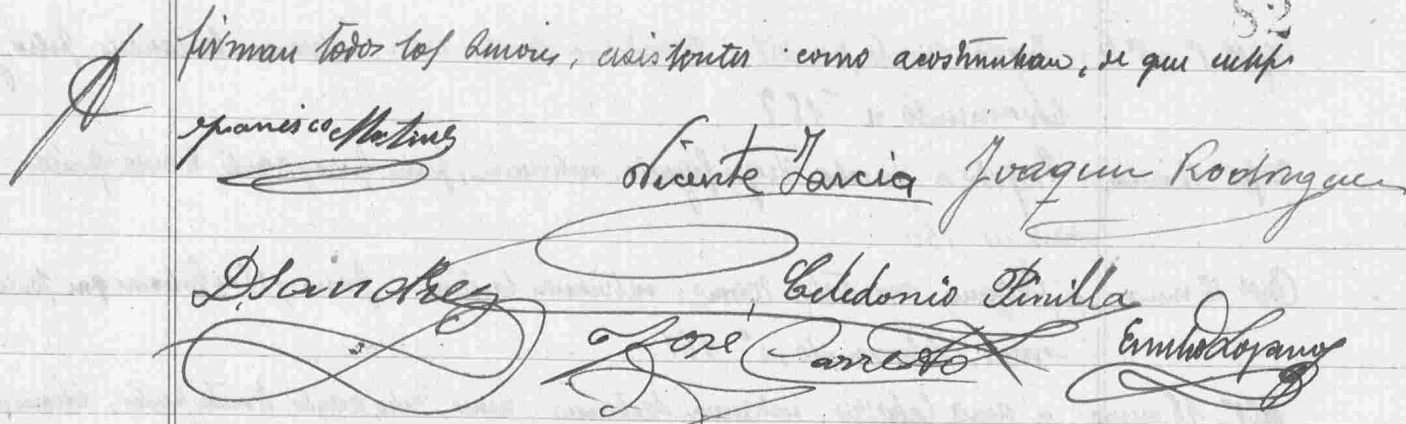 52
firman todos los Señores, asistentes como acostumbran, de que certifico
Francisco Martinez
Vicente Garcia Joaquin Rodriguez
D Sanchez Celedonio Pinilla
José Carreto Emilio Lozano